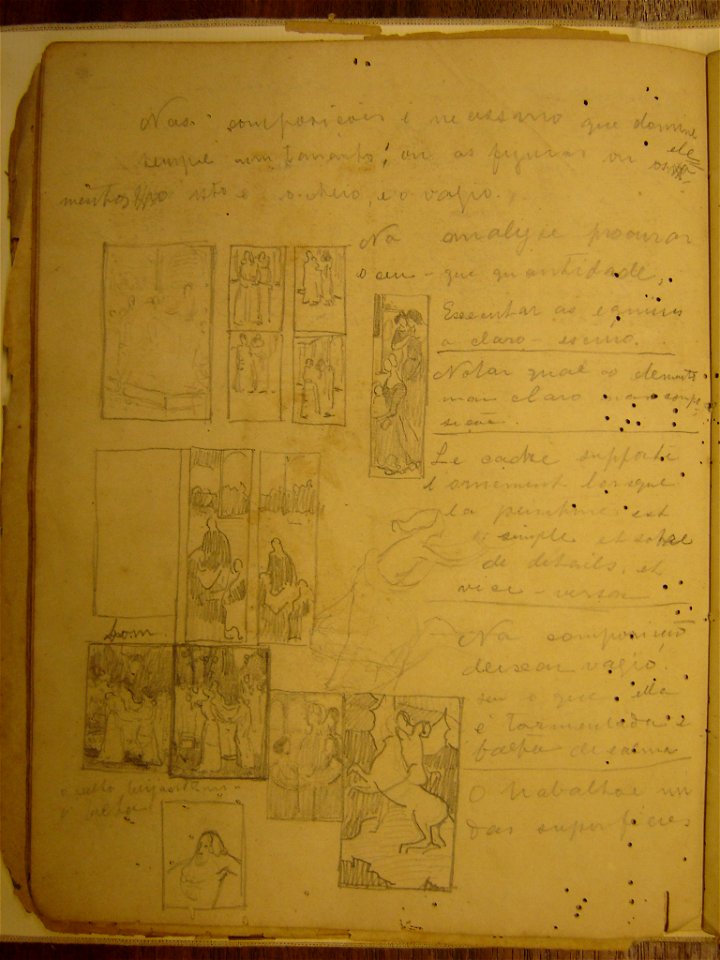 Nas composições é necessario que domine
sempre um tamanho, ou as figuras ou
mentos isto é o cheio, e o vazio.
Na analyse procurar
o ceu - que quantidade,
Executar as equisses
a claro-escuro.
Notar qual o elemento
mais claro na compo-
sição.
Le cadre supporte
l'ornement lorsque
la peinture est
simple et sobre
de details, et
vice-versa
bom.
Na composição
deixar vazio
sem o que ella
é tormentada e
falta de calma
O trabalho
das superficies